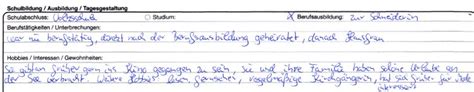 Schulbildung / Ausbildung / Tagesgestaltung
Schulabschluss: Volksschule ☐ Studium: ☒ Berufsausbildung: zur Schneiderin
Berufstätigkeiten / Unterbrechungen:
war nie berufstätig, direkt nach der Berufsausbildung geheiratet, danach Hausfrau
Hobbies / Interessen / Gewohnheiten:
Sie ist früher gern ins Kino gegangen zu sein, sie und ihre Familie haben schöne Urlaube an
der See verbracht. Weitere Hobbys: lesen, fernsehen, regelmäßige Kirchgängerin, hat sich früher für
interessiert